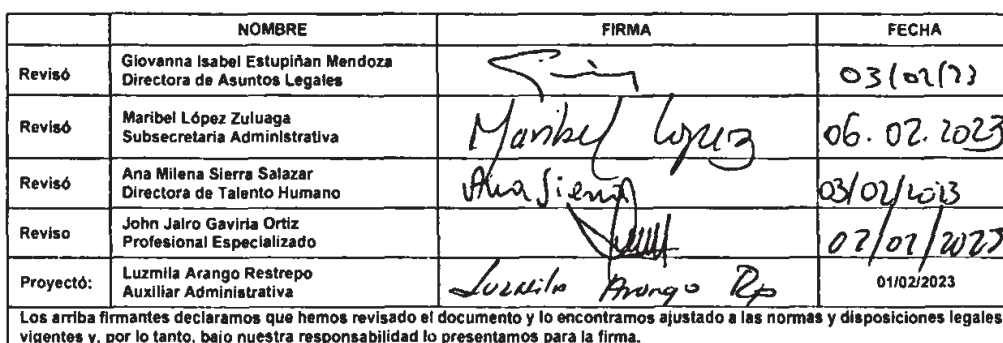 NOMBRE FIRMA FECHA
Revisó Giovanna Isabel Estupiñan Mendoza
Directora de Asuntos Legales 03/02/23
Revisó Maribel López Zuluaga
Subsecretaria Administrativa Maribel Lopez 06.02.2023
Revisó Ana Milena Sierra Salazar
Directora de Talento Humano Ana Sierra 03/02/2023
Reviso John Jairo Gaviria Ortiz
Profesional Especializado
Proyectó: Luzmila Arango Restrepo
Auxiliar Administrativa Luzmila Arango Rp 01/02/2023
Los arriba firmantes declaramos que hemos revisado el documento y lo encontramos ajustado a las normas y disposiciones legales
vigentes y, por lo tanto, bajo nuestra responsabilidad lo presentamos para la firma.